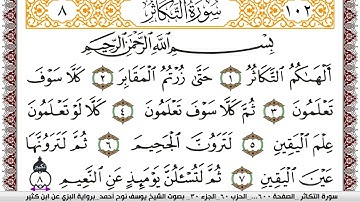 ٨ سُورَةُ التَّكَاثُرِ ١٠٢
بِسْمِ اللَّهِ الرَّحْمَٰنِ الرَّحِيمِ
أَلْهَىٰكُمُ التَّكَاثُرُ ١ حَتَّىٰ زُرْتُمُ الْمَقَابِرَ ٢ كَلَّا سَوْفَ
تَعْلَمُونَ ٣ ثُمَّ كَلَّا سَوْفَ تَعْلَمُونَ ٤ كَلَّا لَوْ تَعْلَمُونَ
عِلْمَ الْيَقِينِ ٥ لَتَرَوُنَّ الْجَحِيمَ ٦ ثُمَّ لَتَرَوُنَّهَا
عَيْنَ الْيَقِينِ ٧ ثُمَّ لَتُسْـَٔلُنَّ يَوْمَئِذٍ عَنِ النَّعِيمِ ٨
سورة التكاثر_ الصفحة ٦٠٠_ الحزب ٦٠_ الجزء ٣٠_ بصوت الشيخ يوسف نوح أحمد_ برواية البزي عن ابن كثير